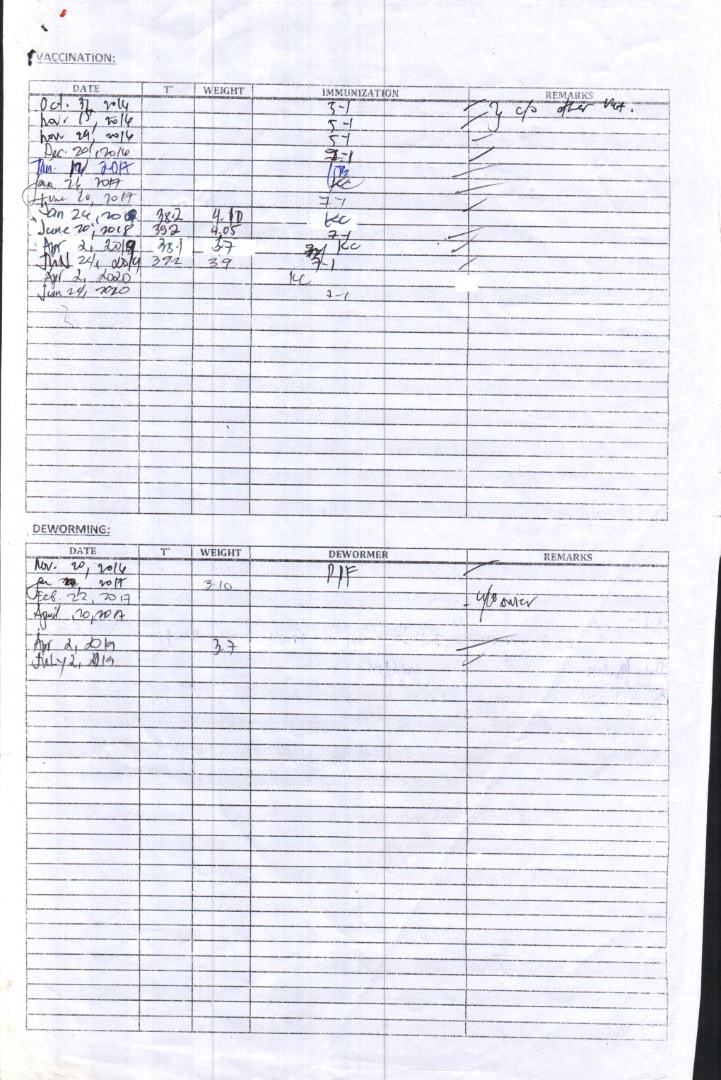 VACCINATION:
DATE T° WEIGHT IMMUNIZATION REMARKS
Oct. 31, 2016 5-1 c/o other Vet.
Nov. 15, 2016 5-1
Nov. 29, 2016 5-1
Dec. 20, 2016 7-1
Jan. 12 2017
Jan. 26 2017 KC
June 20, 2017 7-1
Jan 24, 2018 38.2 4.10 KC
June 20, 2018 39.2 4.05 7-1
Apr 2, 2019 38.1 3.7 KC
24, 2019 39.2 3.9 7-1
Apr 2, 2020 KC
Jun 24, 2020 7-1
DEWORMING:
DATE T° WEIGHT DEWORMER REMARKS
Nov. 20, 2016
Jan 2017 3.10
Feb. 22, 2017 - c/o owner
April 20, 2017
Apr 2, 2019 3.7
July 2, 2019